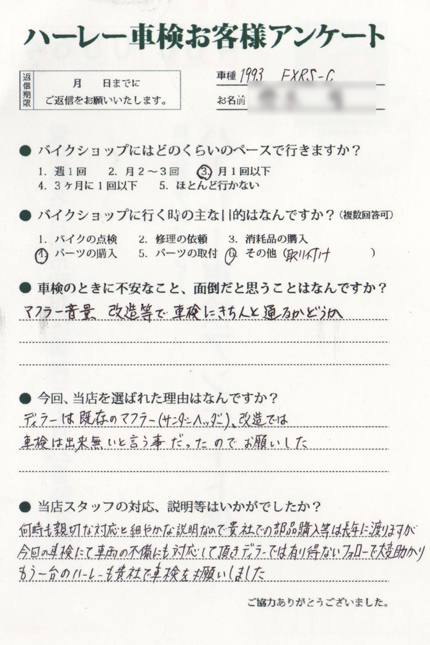 ハーレー車検お客様アンケート
返信期限
月　　日までに
ご返信をお願いいたします。
車種 1993 FXRS-C
お名前
● バイクショップにはどのくらいのペースで行きますか？
1. 週1回　2. 月2～3回　3. 月1回以下
4. 3ヶ月に1回以下　5. ほとんど行かない
● バイクショップに行く時の主な目的はなんですか？（複数回答可）
1. バイクの点検　2. 修理の依頼　3. 消耗品の購入
4. パーツの購入　5. パーツの取付　6. その他（取り付け　）
● 車検のときに不安なこと、面倒だと思うことはなんですか？
マフラー音量、改造等で車検にきちんと通るかどうか
● 今回、当店を選ばれた理由はなんですか？
ディラーは既存のマフラー(サンダーヘッダー)、改造では
車検は出来無いと言う事だったのでお願いした
● 当店スタッフの対応、説明等はいかがでしたか？
何時も親切な対応と細やかな説明なので貴社での部品購入等は長年に渡りますが
今回の車検にて車両の不備にも対応して頂きディラーでは有り得ないフォローで大変助かり
もう一台のハーレーも貴社で車検をお願いしました
ご協力ありがとうございました。